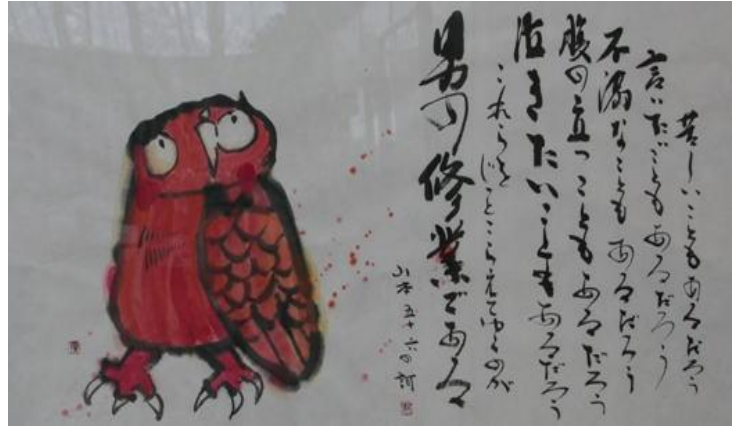 苦しいこともあるだろう
言いたいこともあるだろう
不満なこともあるだろう
腹の立つこともあるだろう
泣きたいこともあるだろう
これらをじっとこらえてゆくのが
男の修業である
山本五十六の詞